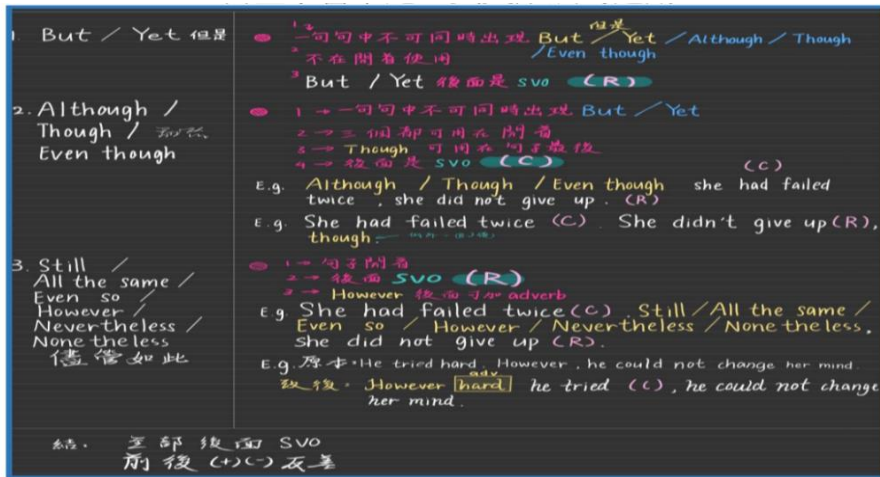 1. But / Yet 但是
1 一句句中不可同時出現 But / Yet / Although / Though
但是
/ Even though
2 不在開首使用
3 But / Yet 後面是 SVO (R)
2. Although /
Though /
Even though
1 → 一句句中不可同時出現 But / Yet
2 → 三個都可用在開首
3 → Though 可用在句子最後
4 → 後面是 SVO (C)
(C)
E.g. Although / Though / Even though she had failed
twice , she did not give up . (R)
E.g. She had failed twice (C) . She didn't give up (R),
though.
3. Still /
All the same /
Even so /
However /
Nevertheless /
None the less
儘管如此
1 → 句子開首
2 → 後面 SVO (R)
3 → However 後面可加 adverb
E.g. She had failed twice (C) . Still / All the same /
Even so / However / Nevertheless / None the less,
she did not give up (R).
E.g. 原本 · He tried hard. However, he could not change her mind.
adv
後 · However hard he tried (C) , he could not change
her mind.
結 · 全部後面 SVO
前後 (+)(-) 反差